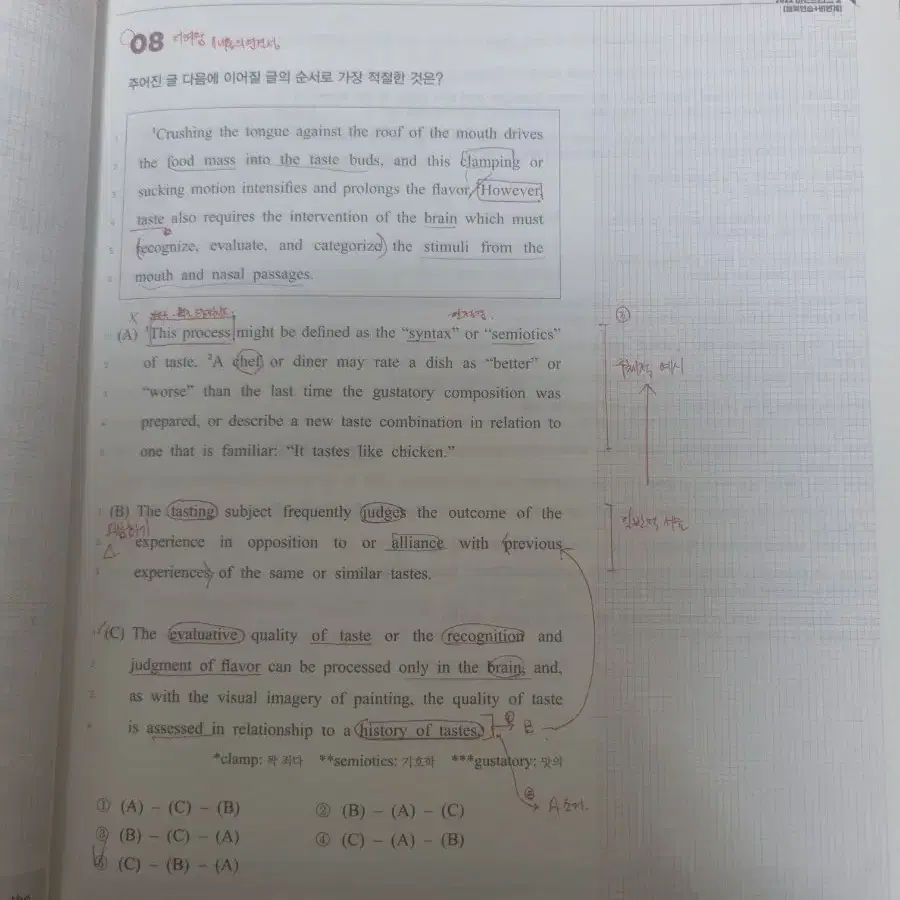 08
주어진 글 다음에 이어질 글의 순서로 가장 적절한 것은?
1Crushing the tongue against the roof of the mouth drives
the food mass into the taste buds, and this clamping or
sucking motion intensifies and prolongs the flavor. However,
taste also requires the intervention of the brain which must
recognize, evaluate, and categorize the stimuli from the
mouth and nasal passages.
(A) 1This process might be defined as the “syntax” or “semiotics”
of taste. 2A chef or diner may rate a dish as “better” or
“worse” than the last time the gustatory composition was
prepared, or describe a new taste combination in relation to
one that is familiar: “It tastes like chicken.”
구체적 예시
(B) The tasting subject frequently judges the outcome of the
experience in opposition to or alliance with previous
experiences of the same or similar tastes.
일반적
(C) The evaluative quality of taste or the recognition and
judgment of flavor can be processed only in the brain, and,
as with the visual imagery of painting, the quality of taste
is assessed in relationship to a history of tastes.
B
*clamp: 꽉 죄다 **semiotics: 기호학 ***gustatory: 맛의
① (A) – (C) – (B) ② (B) – (A) – (C)
③ (B) – (C) – (A) ④ (C) – (A) – (B)
⑤ (C) – (B) – (A)